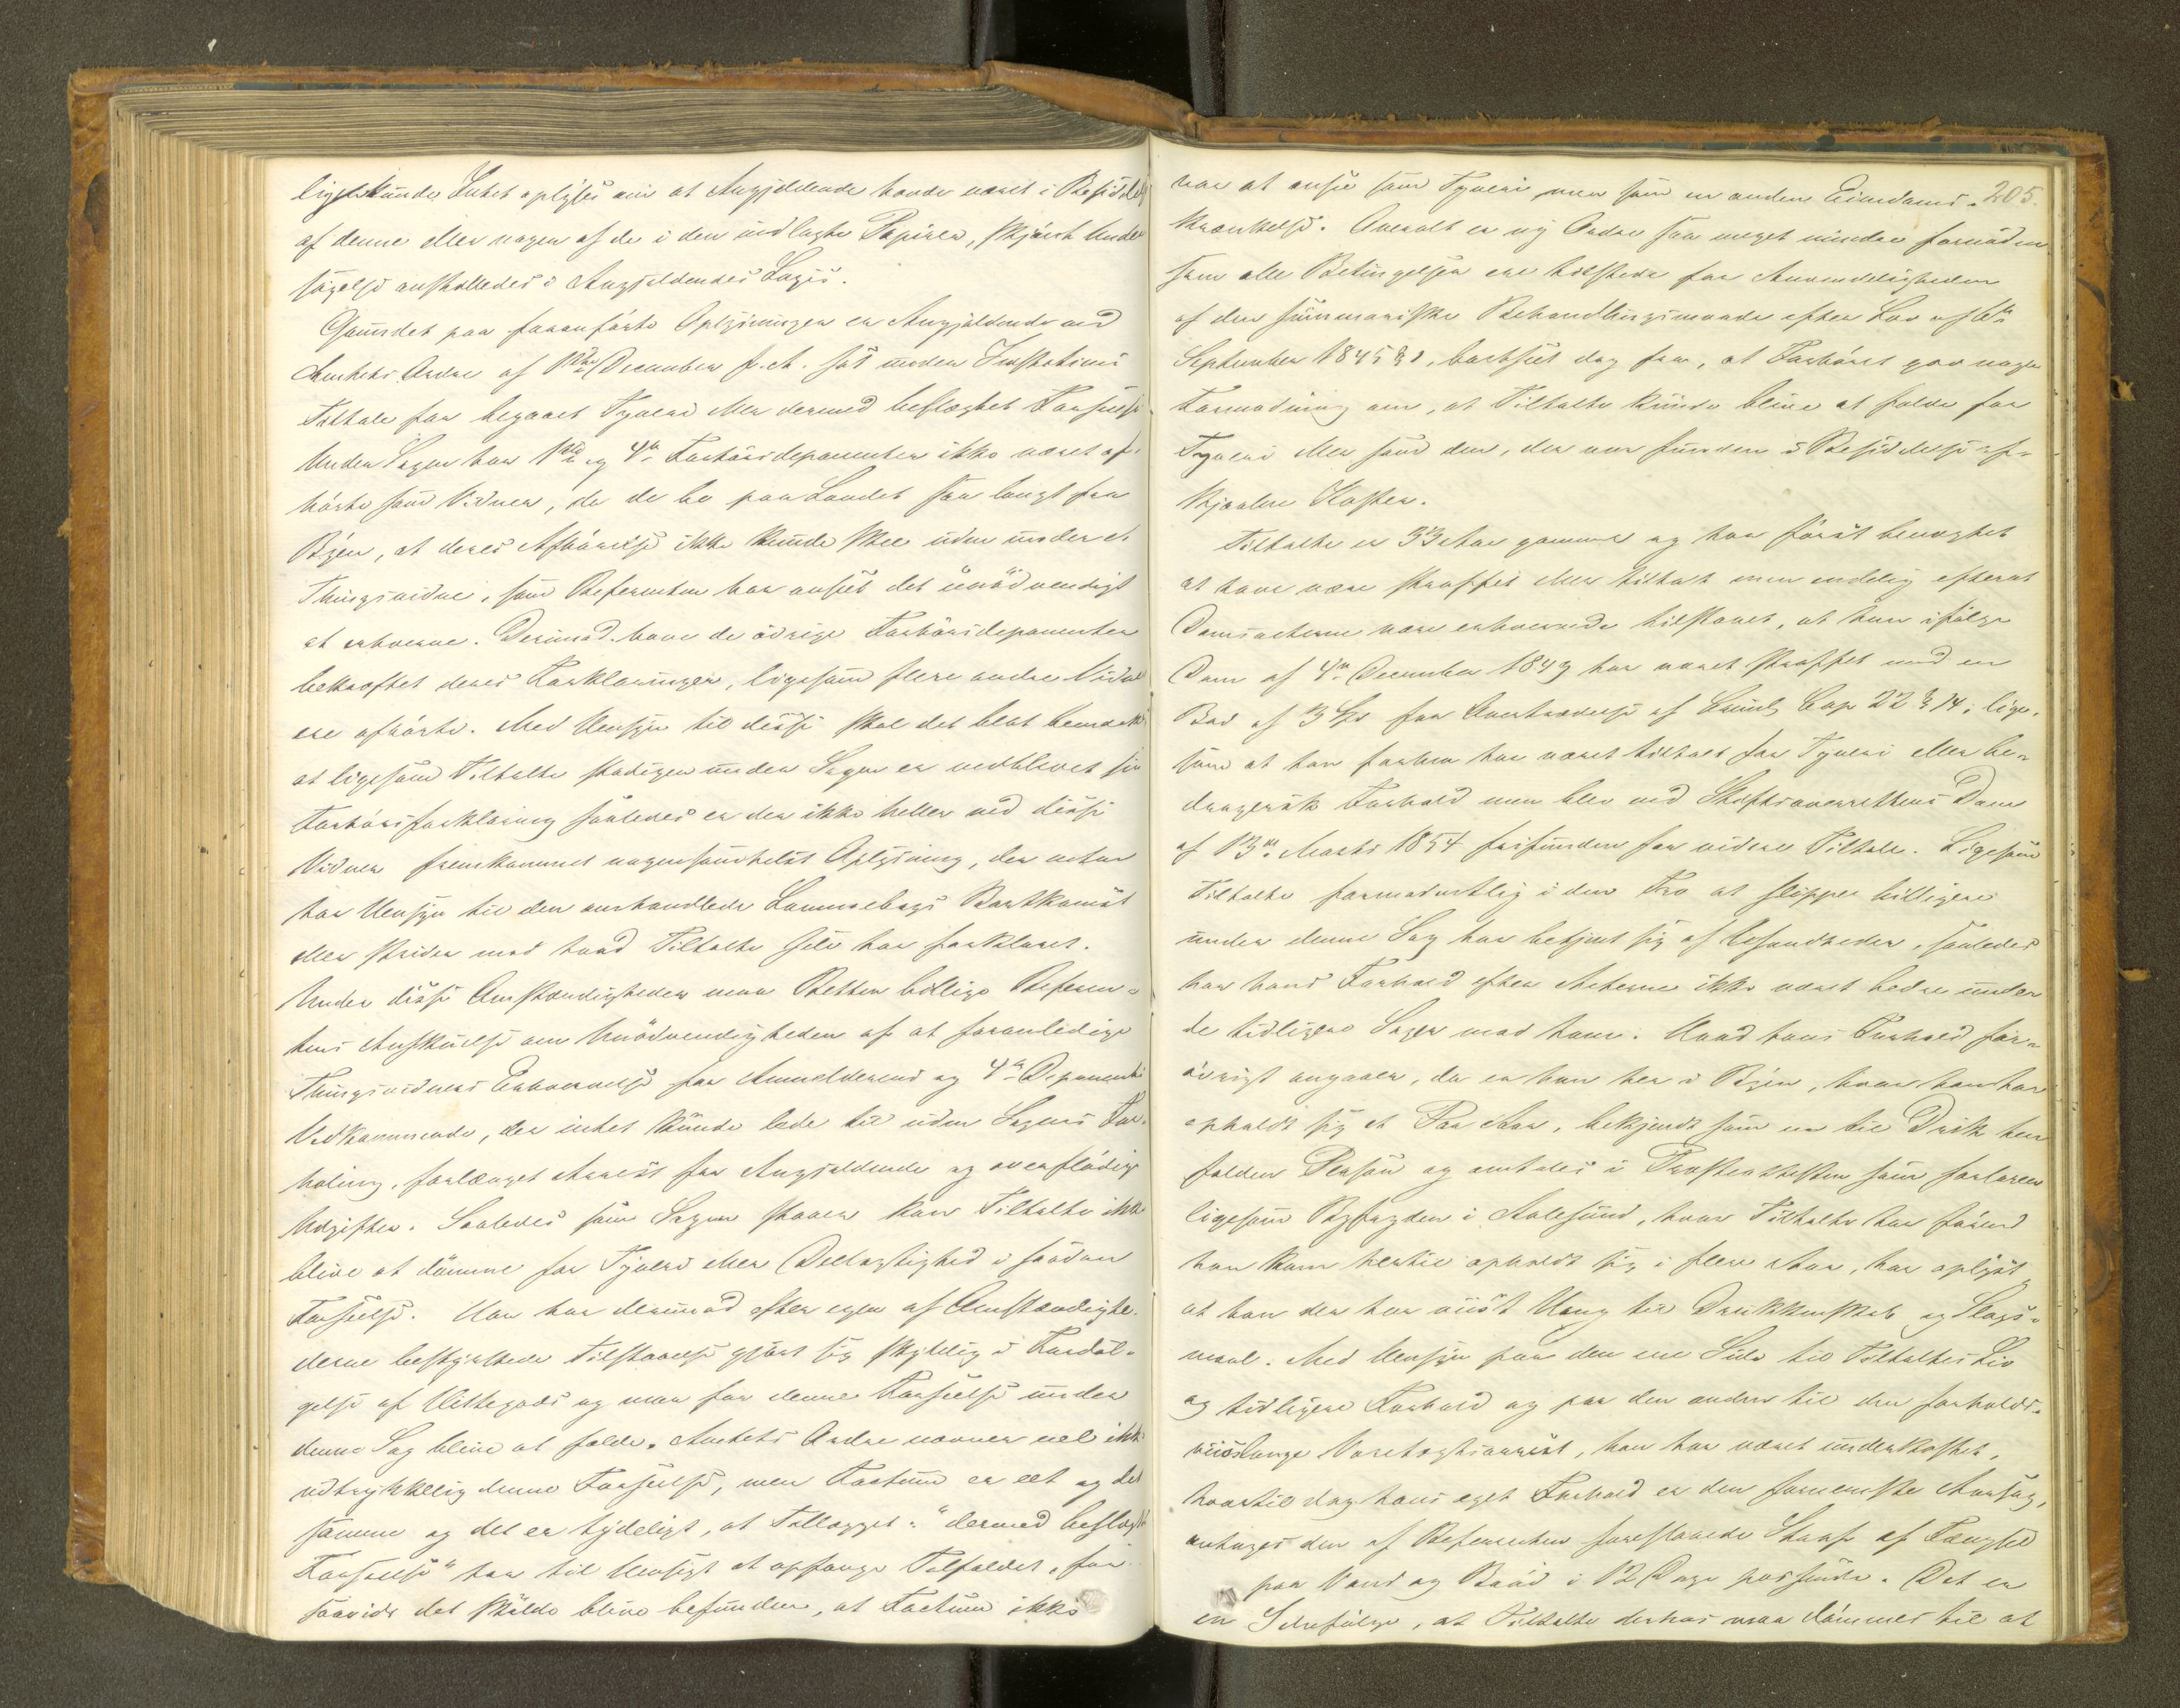 ligekunde Intet oplyses om at Angjeldende havde været i Besiddelse
af denne eller nogen af de i den indlagte Papirer, skjønt Under
søgelse anstilledes i Angjeldendes Logis.
Grundet paa foranførte Oplysninger er Angjeldende ved
Amtets Ordre af December f. A. sat under Justitiens
Tiltale for begaaet Tyveri eller dermed beslægtet Forseelse
Under Sagen har 1ste og 4de Forhørsdeponenter ikke været af-
hørte som Vidner, da de bo paa Landet saa langt fra
Byen, at deres Afhørelse ikke kunde skee uden under et
Thingsvidne, som Referenten har anseet det unödvendigt
at erhverve. Derimod have de øvrige Forhørsdeponenter
bekræftet deres Forklaringer, ligesom flere andre Vidner
ere afhørte. Med Hensyn til disse skal det blot bemærkes
at ligesom Tiltalte stadigen under Sagen er vedblevet sin
Forhørsforklaring saaledes er der ikke heller ved disse
Vidner fremkommet nogensomhelst Oplysning, der enten
har Hensyn til den omhandlede Lommebogs Bortkomst
eller strider mod hvad Tiltalte selv har forklaret.
Under disse Omstændigheder maa Retten billige Referen-
tens Anskuelse om Unødvendigheden af at foranledige
Thingsvidners Erhvervelse for Anmelderens og 4de Deponents
Vedkommende, der intet kunde lede til uden Sagens For-
haling, forlænget Arrest for Angjeldende og overflødige
Udgifter. Saaledes som Sagen staaer kan Tiltalte ikke
blive at dömme for Tyveri eller Deelagtighed i saadan
Forseelse. Han har derimod efter egen af Omstændighe-
derne bestyrkede Tilstaaelse gjort sig skyldig i Fordøl-
gelse af Hittegods og maa for denne Forseelse under
denne Sag blive at fælde. Amtets Ordre nævner vel ikke
udtrykkelig denne Forseelse, men Factum er eet og det
samme og det er tydeligt, at Tillægget: "dermed beslægtet
Forseelse" har til Hensigt at opfange Tilfældet, for-
saavidt det skulde blive befunden, at Factum ikke
205.
var at ansee som Tyveri men som en anden Eiendoms-
krænkelse. Overalt er ny Ordre saa meget mindre fornøden
som alle Betingelser ere tilstede for Anvendeligheden
af den summariske Behandlingsmaade efter Lov af
September 1845 § 1, bortseet dog fra, at Forhøret gav nogen
Formodning om, at Tiltalte kunde blive at fælde for
Tyveri eller som den, der var funden i Besiddelse af
stjaalne Koster.
Tiltalte er 33 Aar gammel og har først benægtet
at have været straffet eller tiltalt men endelig efterat
Domsacterne vare erhvervede tilstaaet, at han ifølge
Dom af 4de December 1849 har været straffet med en
Bod af 3 Spd for Overtrædelse af Criml. Cap 22 § 14, lige-
som at han forhen har været tiltalt for Tyveri eller be-
dragersk Forhold men blev ved Stiftsoverrettens Dom
af 13de Marts 1854 frifunden for videre Tiltale. Ligesom
Tiltalte formodentlig i den Tro at slippe billigere
under denne Sag har betjent sig af Usandheder, saaledes
har hans Forhold efter Acterne ikke været bedre under
de tidligere Sager mod ham. Hvad hans Forhold for-
øvrigt angaaer, da er han her i Byen, hvor han har
opholdt sig et Par Aar, bekjendt som en til Drik hen
falden Person og omtales i Præsteattesten som forloren
ligesom Byfogden i Aalesund, hvor Tiltalte har førend
han kom hertil opholdt sig i flere Aar, har oplyst,
at han der har viist Hang til Drukkenskab og Slags-
maal. Med Hensyn paa den ene Side til Tiltaltes Liv
og tidligere Forhold og paa den anden til den forholds-
viislange Varetægtsarrest, han har været underkastet,
hvortil dog hans eget Forhold er den fornemste Aarsag,
antages den af Referenten foreslaaede Straf af Fængsel
paa Vand og Brød i 12 Dage passende. Det er
en Selvfølge, at Tiltalte derhos maa dömmes til at